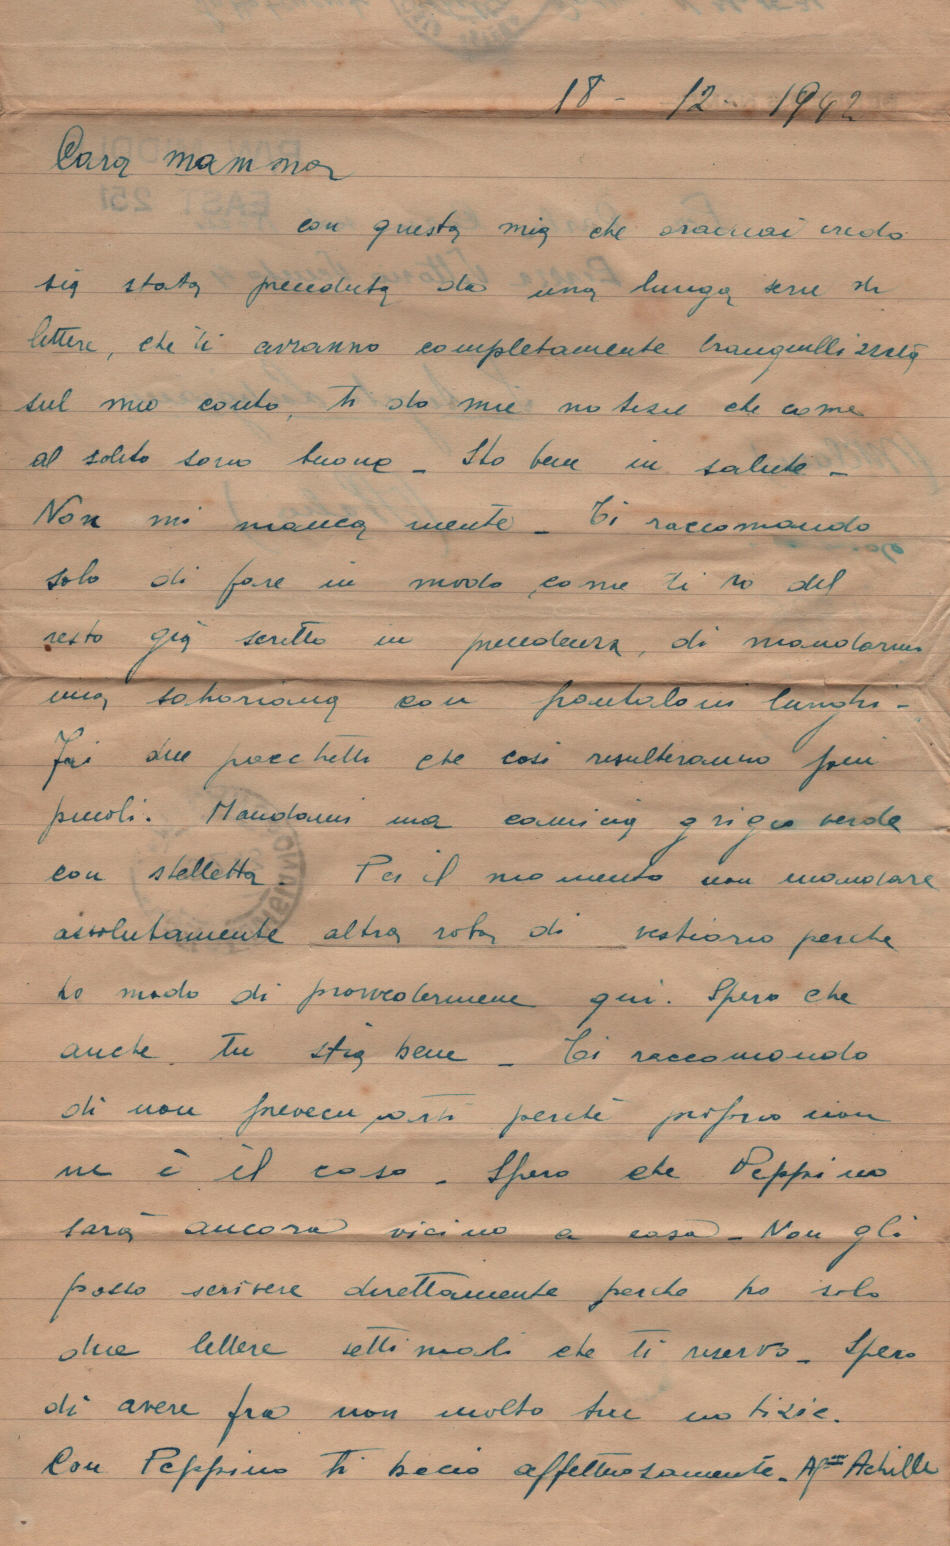 18 - 12 - 1942
Cara mamma
con questa mia che oramai credo
sia stata preceduta da una lunga serie di
lettere, che ti avranno completamente tranquillizzata
sul mio conto, ti do mie notizie che come
al solito sono buone - Sto bene in salute -
Non mi manca niente - Ti raccomando
solo di fare in modo, come ti ho del
resto già scritto in precedenza, di mandarmi
una sahariana con pantaloni lunghi -
Fai due pacchetti che così risulteranno più
piccoli. Mandami una camicia grigio verde
con stelletta. Per il momento non mandare
assolutamente altra roba di vestiario perche
ho modo di provvedermene qui. Spero che
anche tu stia bene - Ti raccomando
di non preoccuparti perchè proprio non
ne è il caso - Spero che Peppino
sarà ancora vicino a casa - Non gli
posso scrivere direttamente perche ho solo
due lettere settimali che ti riservo - Spero
di avere fra non molto tue notizie.
Con Peppino ti bacio affettuosamente - Aff.mo Achille
P/W MIDDLE
EAST 251